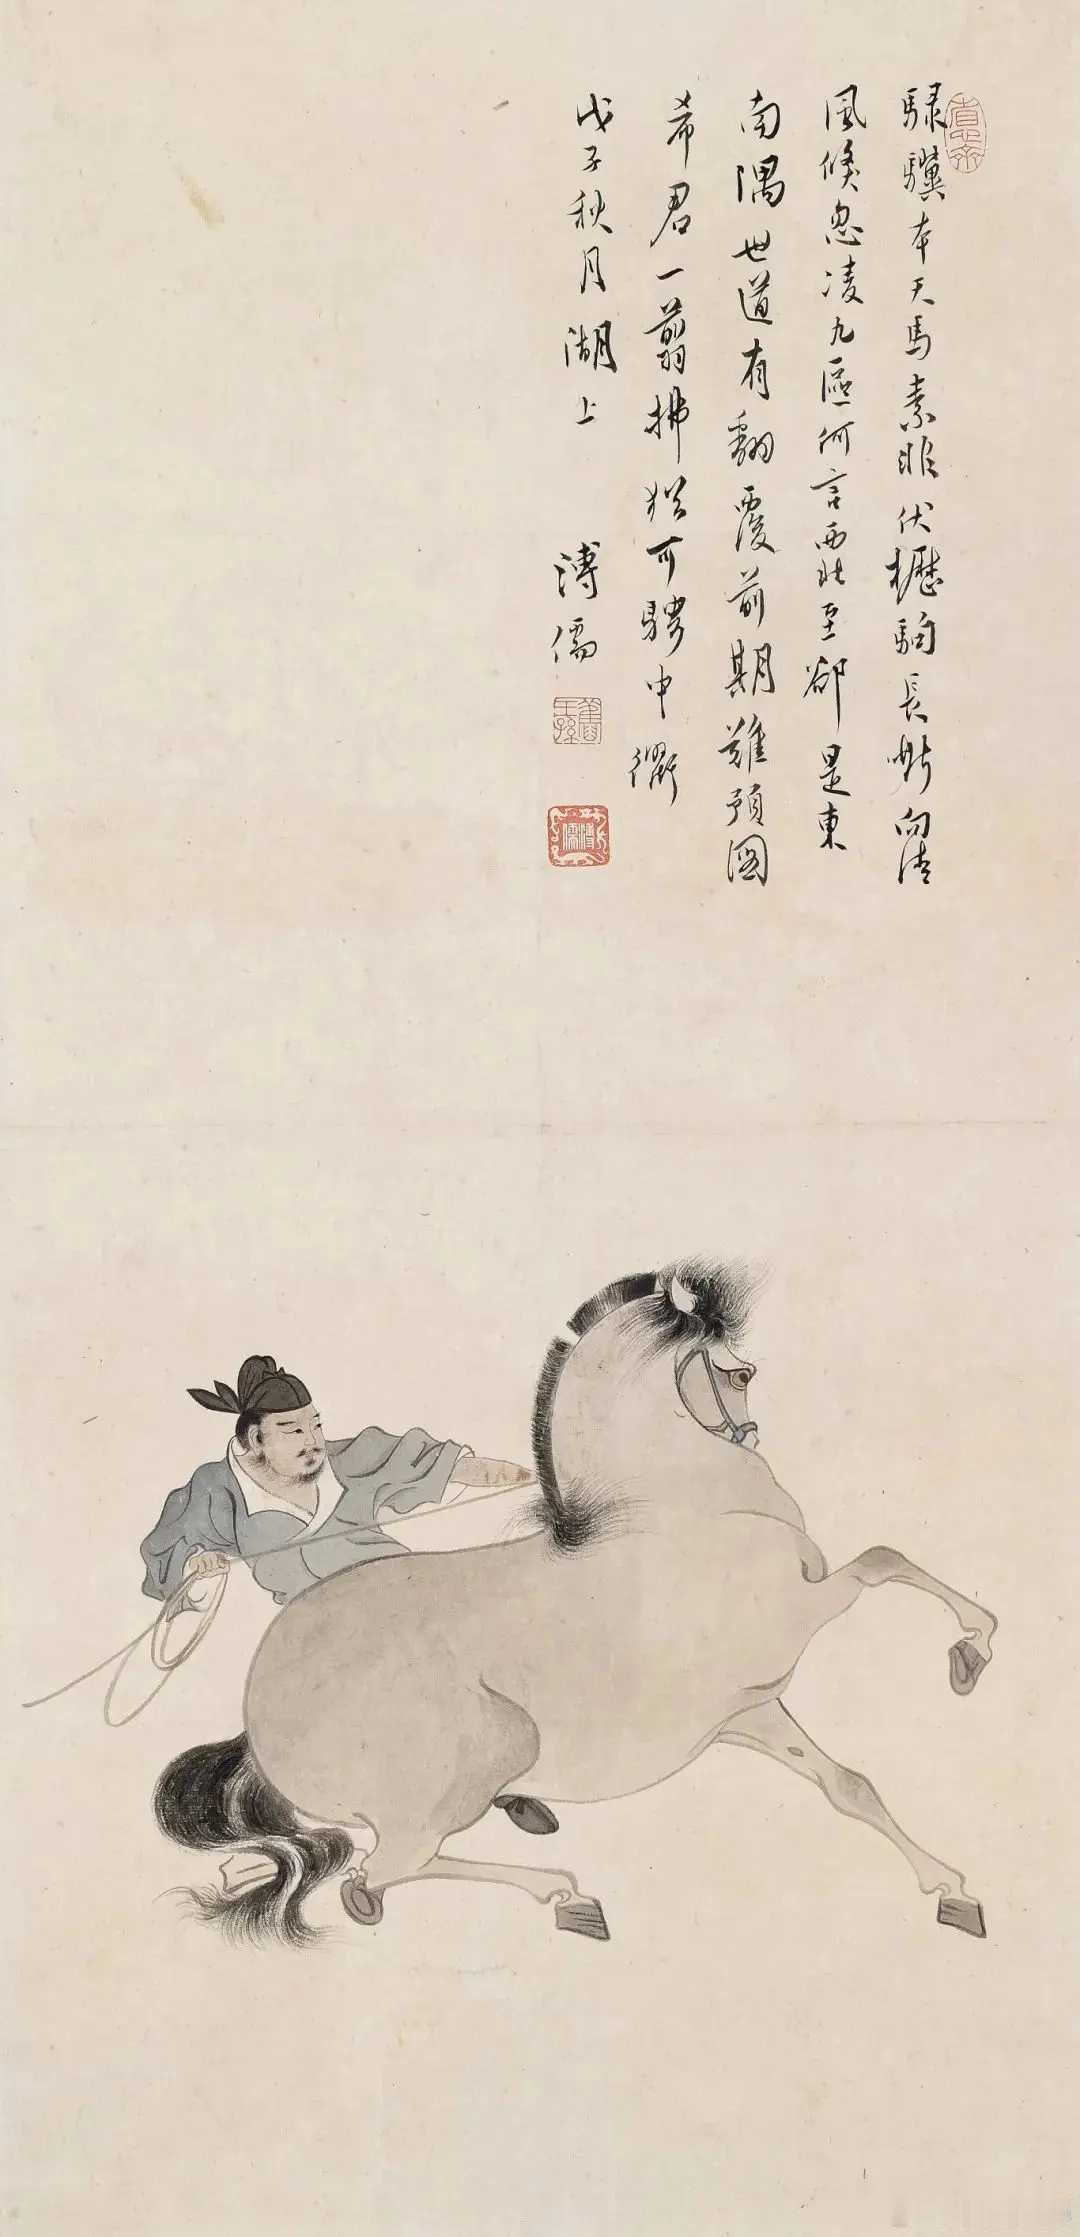 省心齋
騄驥本天馬素非伏櫪駒長嘶向清
風倏忽凌九區何言西北至卻是東
南隅世道有翻覆前期難預圖
希君一翦拂猶可騁中衢
戊子秋月湖上 溥儒
舊王孫
溥儒